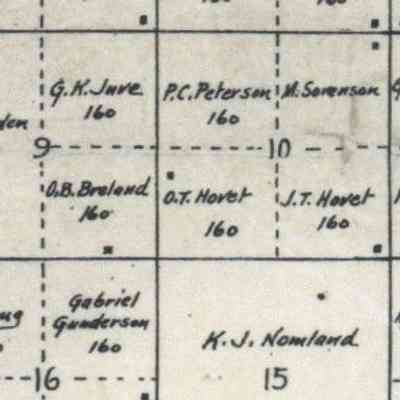 G.K. Juve
160
P.C. Peterson
160
M. Sorenson
9
10
O.B. Breland
160
O.T. Hovet
160
J.T. Hovet
160
Gabriel
Gunderson
160
K. J. Nomland
16
15